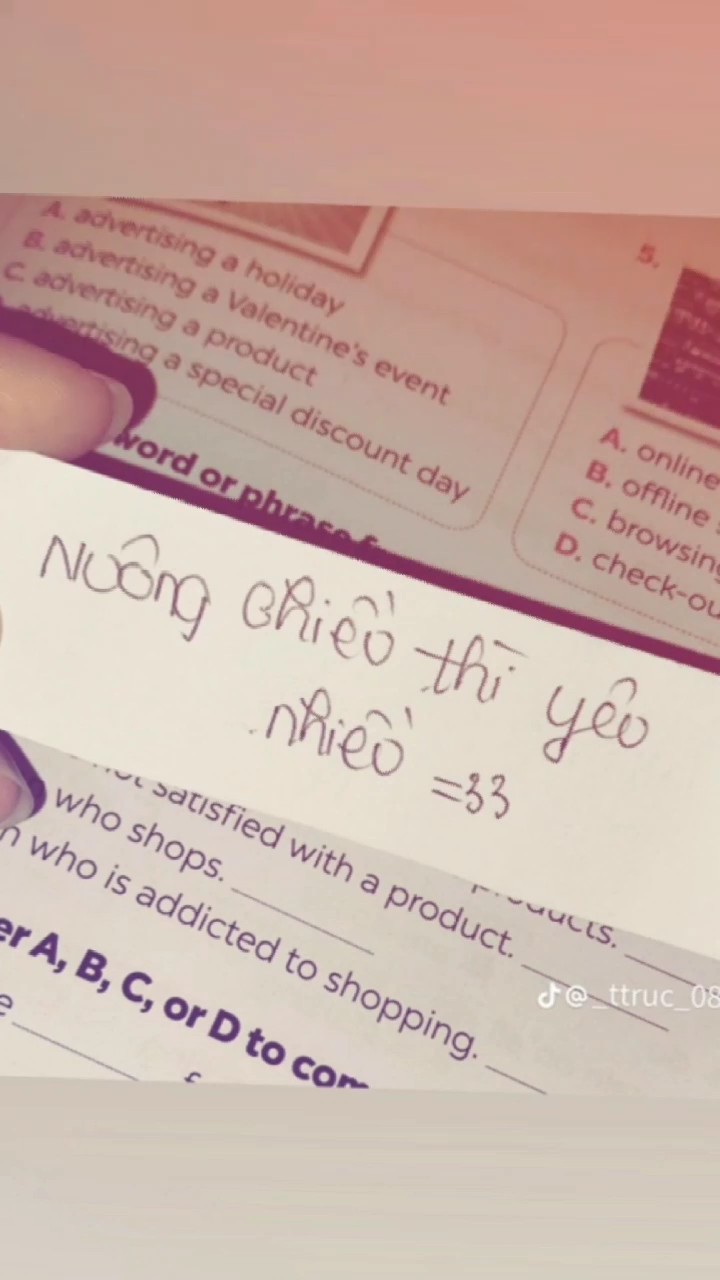 A. advertising a holiday
B. advertising a Valentine's event
C. advertising a product
advertising a special discount day
5.
A. online
B. offline
C. browsing
D. check-ou
word or phrase f
Nuông chiều thì yêu
nhiều =33
not satisfied with a product.
products.
who shops.
n who is addicted to shopping.
er A, B, C, or D to com
e
@_ttruc_08